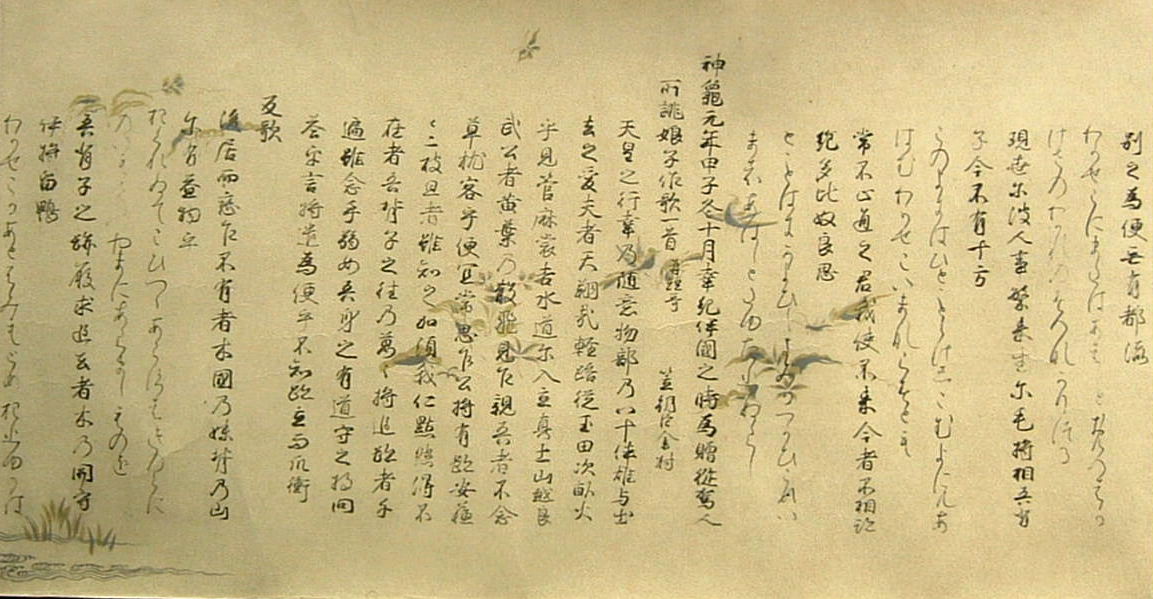 別之為便无有都流
わかせこにまたはあはしとおもへはか
けさのわかれのすへなかりつる
現世尓波人事繁来生尓毛将相吾背
子今不有十方
このよにはひとことしけしこむよにもあ
はむわかせこいまならすとも
常不止通之君我使不来今者不相跡
絶多比奴良思
とことはにかよひしきみかつかひこすい
まはあはしとたゆたひぬらし
神龜元年甲子冬十月幸紀伊國之時為贈從駕人
所誂娘子作歌一首 并短哥 笠朝臣金村
天皇之行幸乃随意物部乃八十伴雄与出
去之愛夫者天翔哉軽路従玉田次畝火
乎見管麻裳吉水道尓入立真土山越良
武公者黄葉乃散飛見乍親吾者不念
草枕客乎便宜常思乍公将有跡安蘇
々二破且者雖知之加須我仁黙然得不
在者吾背子之往乃萬々将追跡者千
遍雖念手弱女吾身之有道守之将問
答乎言将遣為便乎不知跡立而爪衝
反歌
後居而戀乍不有者木國乃妹背乃山
尓有益物乎
おくれゐてこひつゝあらすはきのくに
の やまにあらましものを
吾背子之跡履求追去者木乃関守
伊将留鴨
わかせこかあとふみもとめおひゆかは